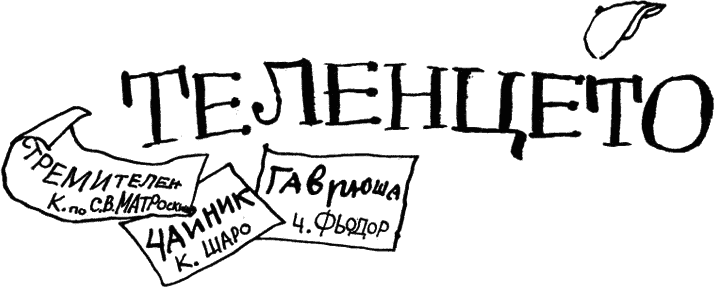 ТЕЛЕНЦЕТО
СТРЕМИТЕЛЕН
К. по С.В. МАТРОСКИН
ЧАЙНИК
К. ШАРО
ГАВРЮША
Ч. ФЬОДОР